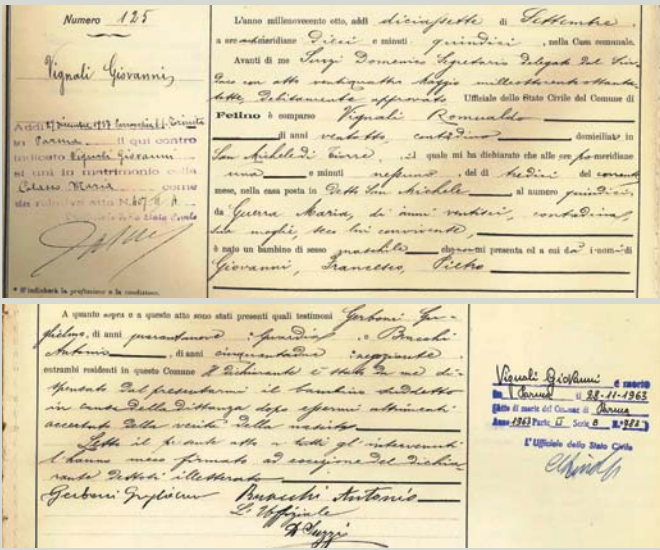 Numero 125
Vignali Giovanni
Addì 27 Dicembre 1937
in Parma il qui contro
indicato Vignali Giovanni
si unì in matrimonio colla
Maria come
da relativo atto N. 407 II A
* S'indicherà la professione o la condizione.
L'anno millenovecento otto, addì diciassette di Settembre
a ore meridiane dieci e minuti quindici, nella Casa comunale.
Avanti di me Suzzi Domenico Segretario delegato dal Sin-
daco con atto ventiquattro Maggio milleottocento ottanta-
sette, debitamente approvato Ufficiale dello Stato Civile del Comune di
Felino è comparso Vignali Romualdo
di anni ventotto, contadino domiciliato in
San Michele di Tiorre, il quale mi ha dichiarato che alle ore po-meridiane
una e minuti nessuno, del dì tredici del corrente
mese, nella casa posta in Detto San Michele al numero quindici
da Guerra Maria, di anni ventisei, contadina,
sua moglie, seco lui convivente,
è nato un bambino di sesso maschile che mi presenta ed a cui dà i nomi di
Giovanni, Francesco, Pietro
A quanto sopra e a questo atto sono stati presenti quali testimoni Gerboni Gu-
glielmo, di anni quarantanove Guardia e Bracchi
Antonio, di anni cinquantadue negoziante
entrambi residenti in questo Comune Il dichiarante è stato da me di-
spensato dal presentarmi il bambino suddetto
in causa della distanza dopo essermi altrimenti
accertato della verità della nascita
Letto il presente atto a tutti gl'intervenuti
l'hanno meco firmato ad eccezione del dichia-
rante dettosi illetterato
Gerboni Guglielmo Bracchi Antonio
L'Uffiziale
D. Suzzi
Vignali Giovanni è morto
in Parma il 28-11-1963
(Atto di morte del Comune di Parma
Anno 1963 Parte II Serie B N. 982)
L'Ufficiale dello Stato Civile